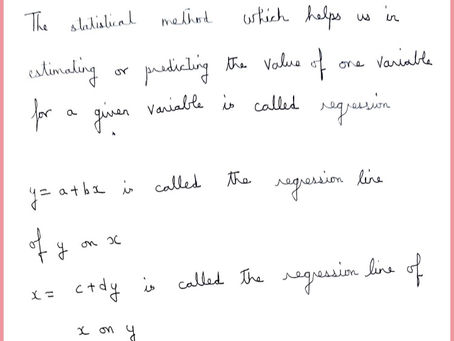 The statistical method which helps us in
estimating or predicting the value of one variable
for a given variable is called regression
y = a+bx is called the regression line
of y on x
x = c+dy is called the regression line of
x on y